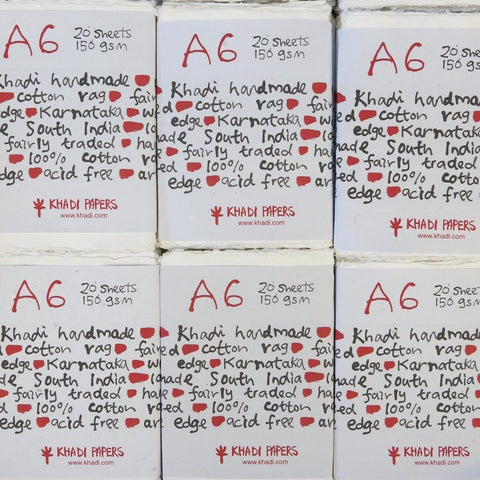 A6
20 sheets
150 gsm
Khadi handmade
cotton rag fair
edge Karnataka
South India
fairly traded
100% cotton
edge acid free
KHADI PAPERS
www.khadi.com
A6
20 sheets
150 gsm
Khadi handmade
ed cotton rag fair
edge Karnataka w
made South India
fairly traded ha
ed 100% cotton ra
edge acid free ar
KHADI PAPERS
www.khadi.com
A6
20 sheets
150 gsm
Khadi handmade
ed cotton rag
edge Karnataka
made South India
fairly traded
ed 100% cotton
edge acid free
KHADI PAPERS
www.khadi.com
A6
20 sheets
150 gsm
Khadi handmade
cotton rag fair
edge Karnataka
South India
fairly traded ha
100% cotton
edge acid free
KHADI PAPERS
www.khadi.com
A6
20 sheets
150 gsm
Khadi handmade
ed cotton rag fair
edge Karnataka w
made South India
fairly traded ha
ed 100% cotton ro
edge acid free ar
KHADI PAPERS
www.khadi.com
A6
20 sheets
150 gsm
Khadi handmade
ed cotton rag
edge Karnataka
made South India
fairly traded
ed 100% cotton
edge acid free
KHADI PAPERS
www.khadi.com